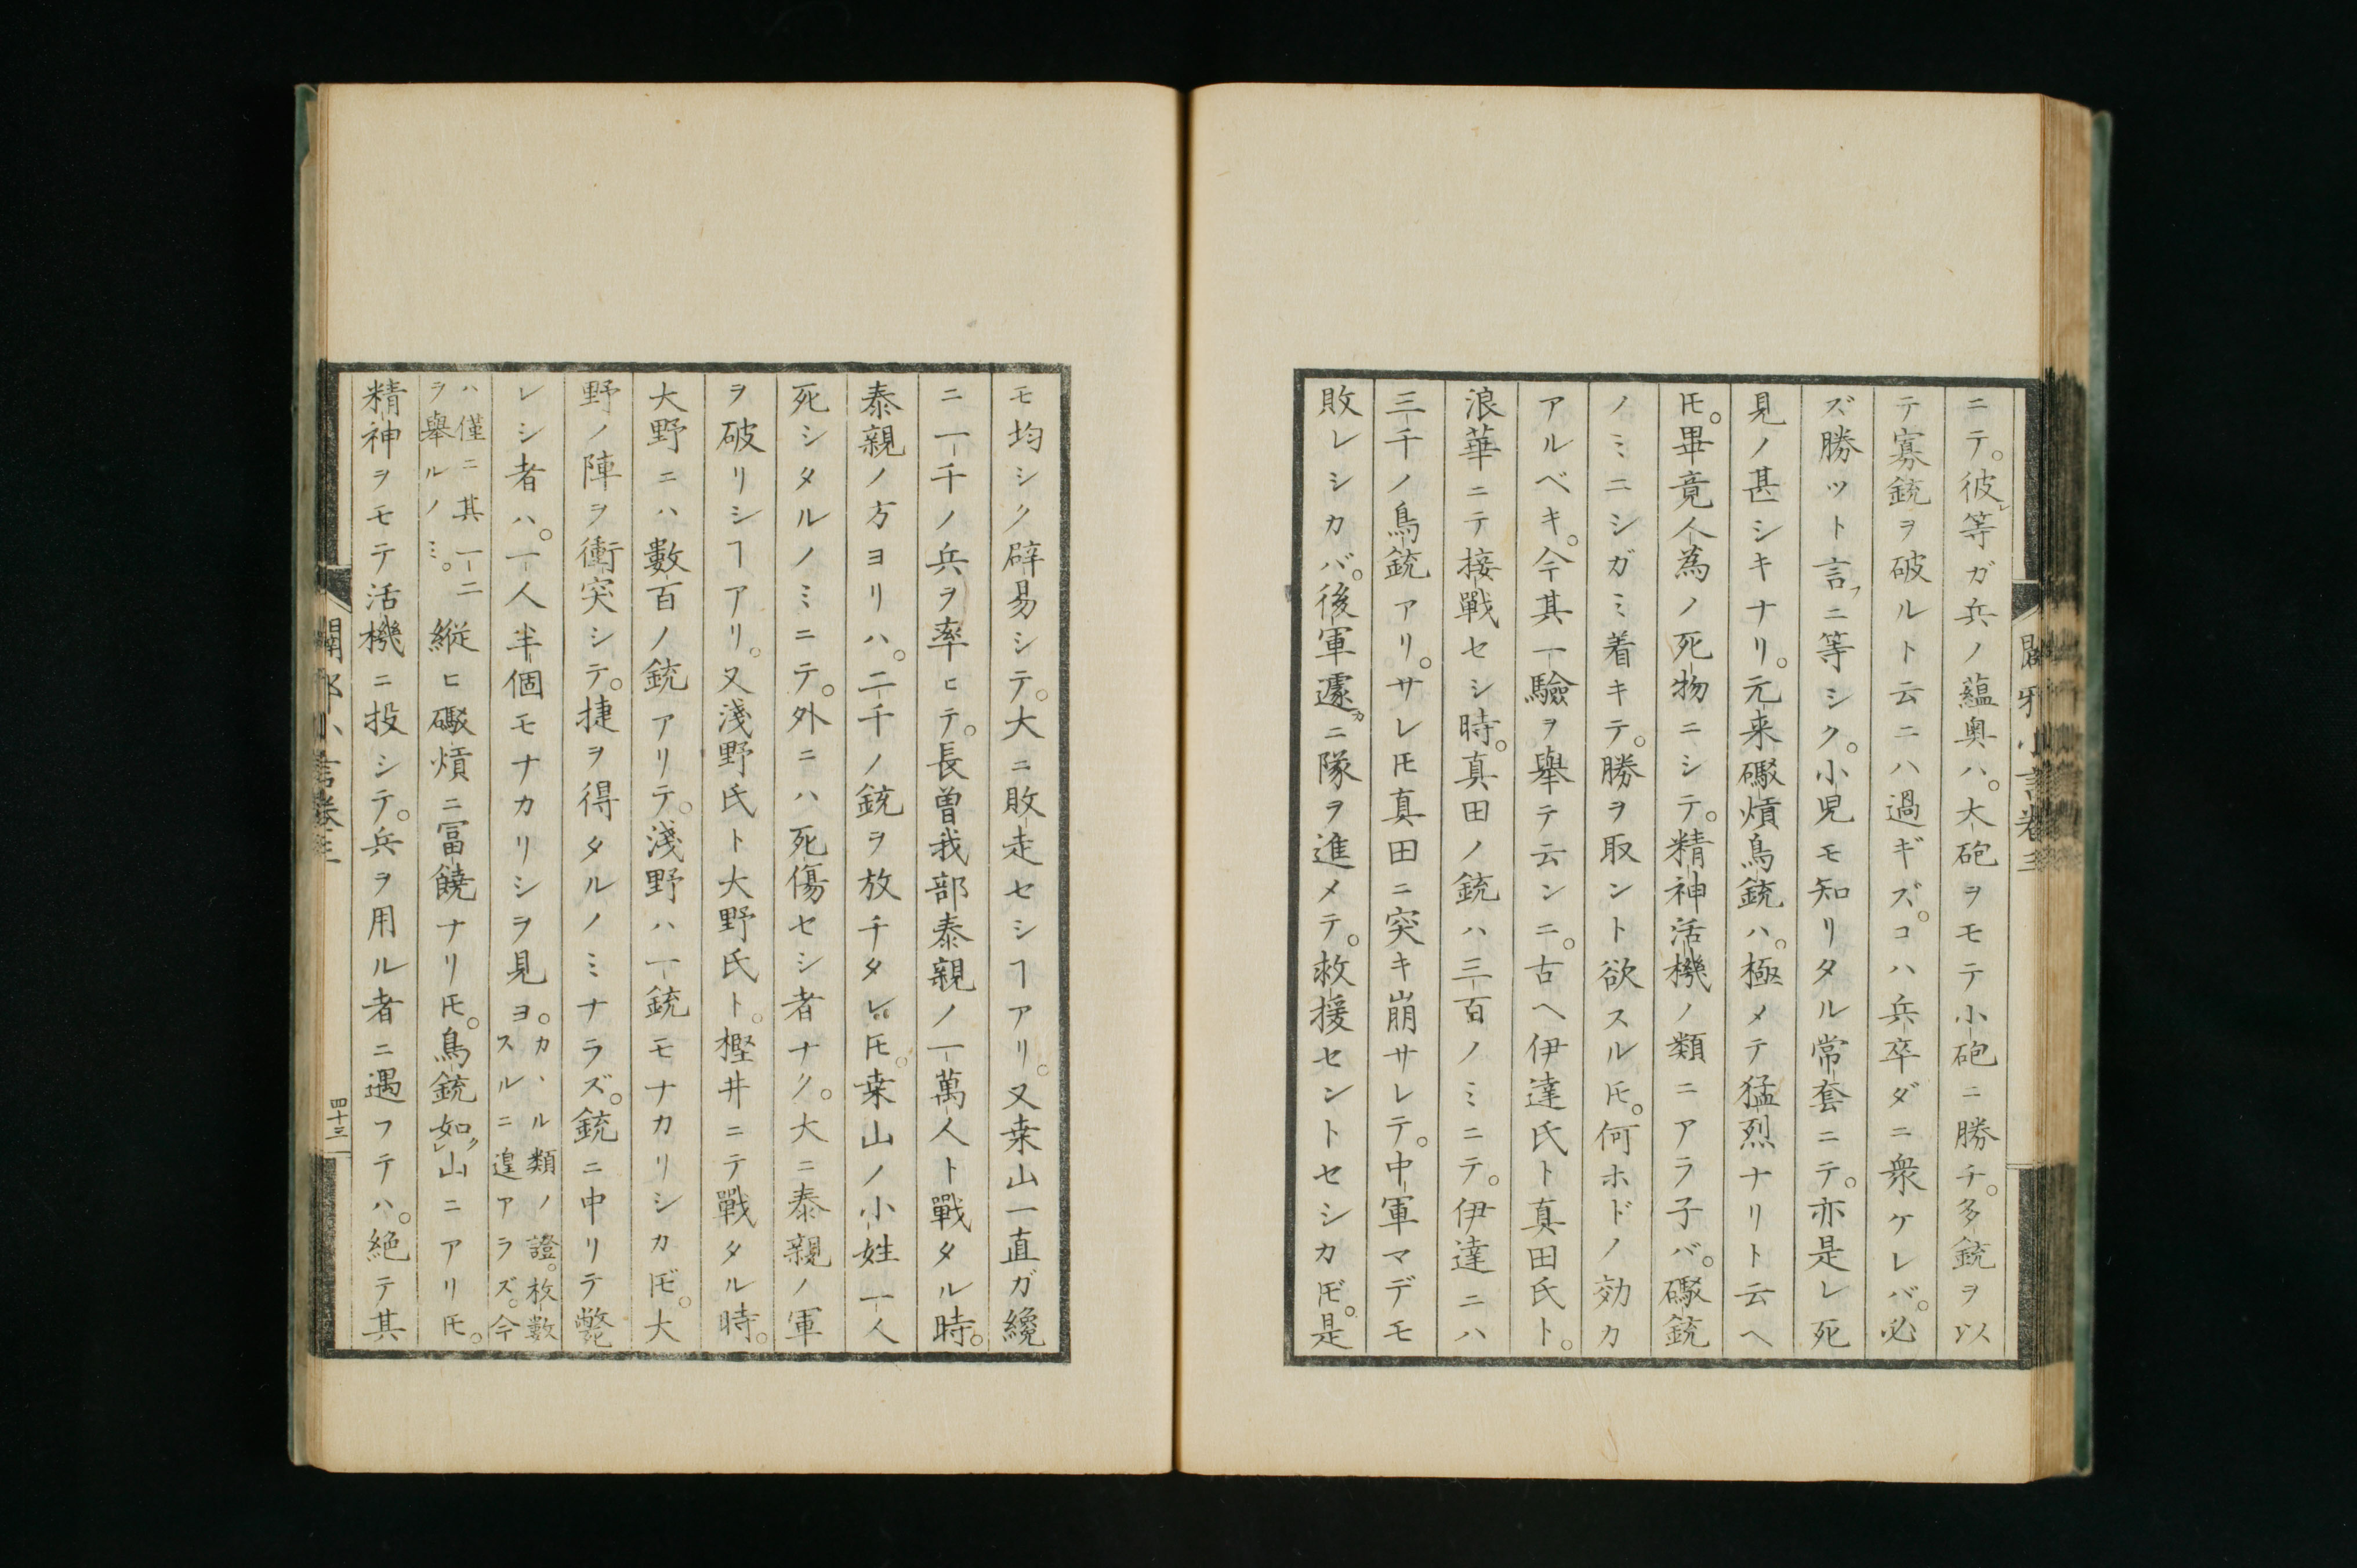 ニテ。彼レ等ガ兵ノ蘊奥ハ。大砲ヲモテ小砲ニ勝チ。多銃ヲ以
テ寡銃ヲ破ルト云ニハ過ギズ。コハ兵卒ダニ衆ケレバ。必
ズ勝ツト言フニ等シク。小児モ知リタル常套ニテ。亦是レ死
見ノ甚シキナリ。元来礮熕鳥銃ハ。極メテ猛烈ナリト云ヘ
𪜈。畢竟人為ノ死物ニシテ。精神活機ノ類ニアラ子バ。礮銃
ノミニシガミ着キテ。勝ヲ取ント欲スル𪜈。何ホドノ効カ
アルベキ。今其一驗ヲ舉テ云ンニ。古ヘ伊達氏ト真田氏ト。
浪華ニテ接戰セシ時。真田ノ銃ハ三百ノミニテ。伊達ニハ
三千ノ鳥銃アリ。サレ𪜈真田ニ突キ崩サレテ。中軍マデモ
敗レシカバ。後軍遽カニ隊ヲ進メテ。救援セントセシカ𪜈。是
モ均シク辟易シテ。大ニ敗走セシヿアリ。又桒山一直ガ纔
ニ一千ノ兵ヲ率ヒテ。長曽我部泰親ノ一萬人ト戰タル時。
泰親ノ方ヨリハ。二千ノ銃ヲ放チタレ𪜈。桒山ノ小姓一人
死シタルノミニテ。外ニハ死傷セシ者ナク。大ニ泰親ノ軍
ヲ破リシヿアリ。又淺野氏ト大野氏ト。樫井ニテ戰タル時。
大野ニハ數百ノ銃アリテ。淺野ハ一銃モナカリシカ𪜈。大
野ノ陣ヲ衝突シテ。捷ヲ得タルノミナラズ。銃ニ中リテ斃
レシ者ハ。一人半個モナカリシヲ見ヨ。カヽル類ノ證。枚數スルニ遑アラズ。今
ハ僅ニ其一二ヲ舉ルノミ。縦ヒ礮熕ニ冨饒ナリ𪜈。鳥銃如クレ山ニアリ𪜈。
精神ヲモテ活機ニ投シテ。兵ヲ用ル者ニ遇フテハ。絶テ其
四十三